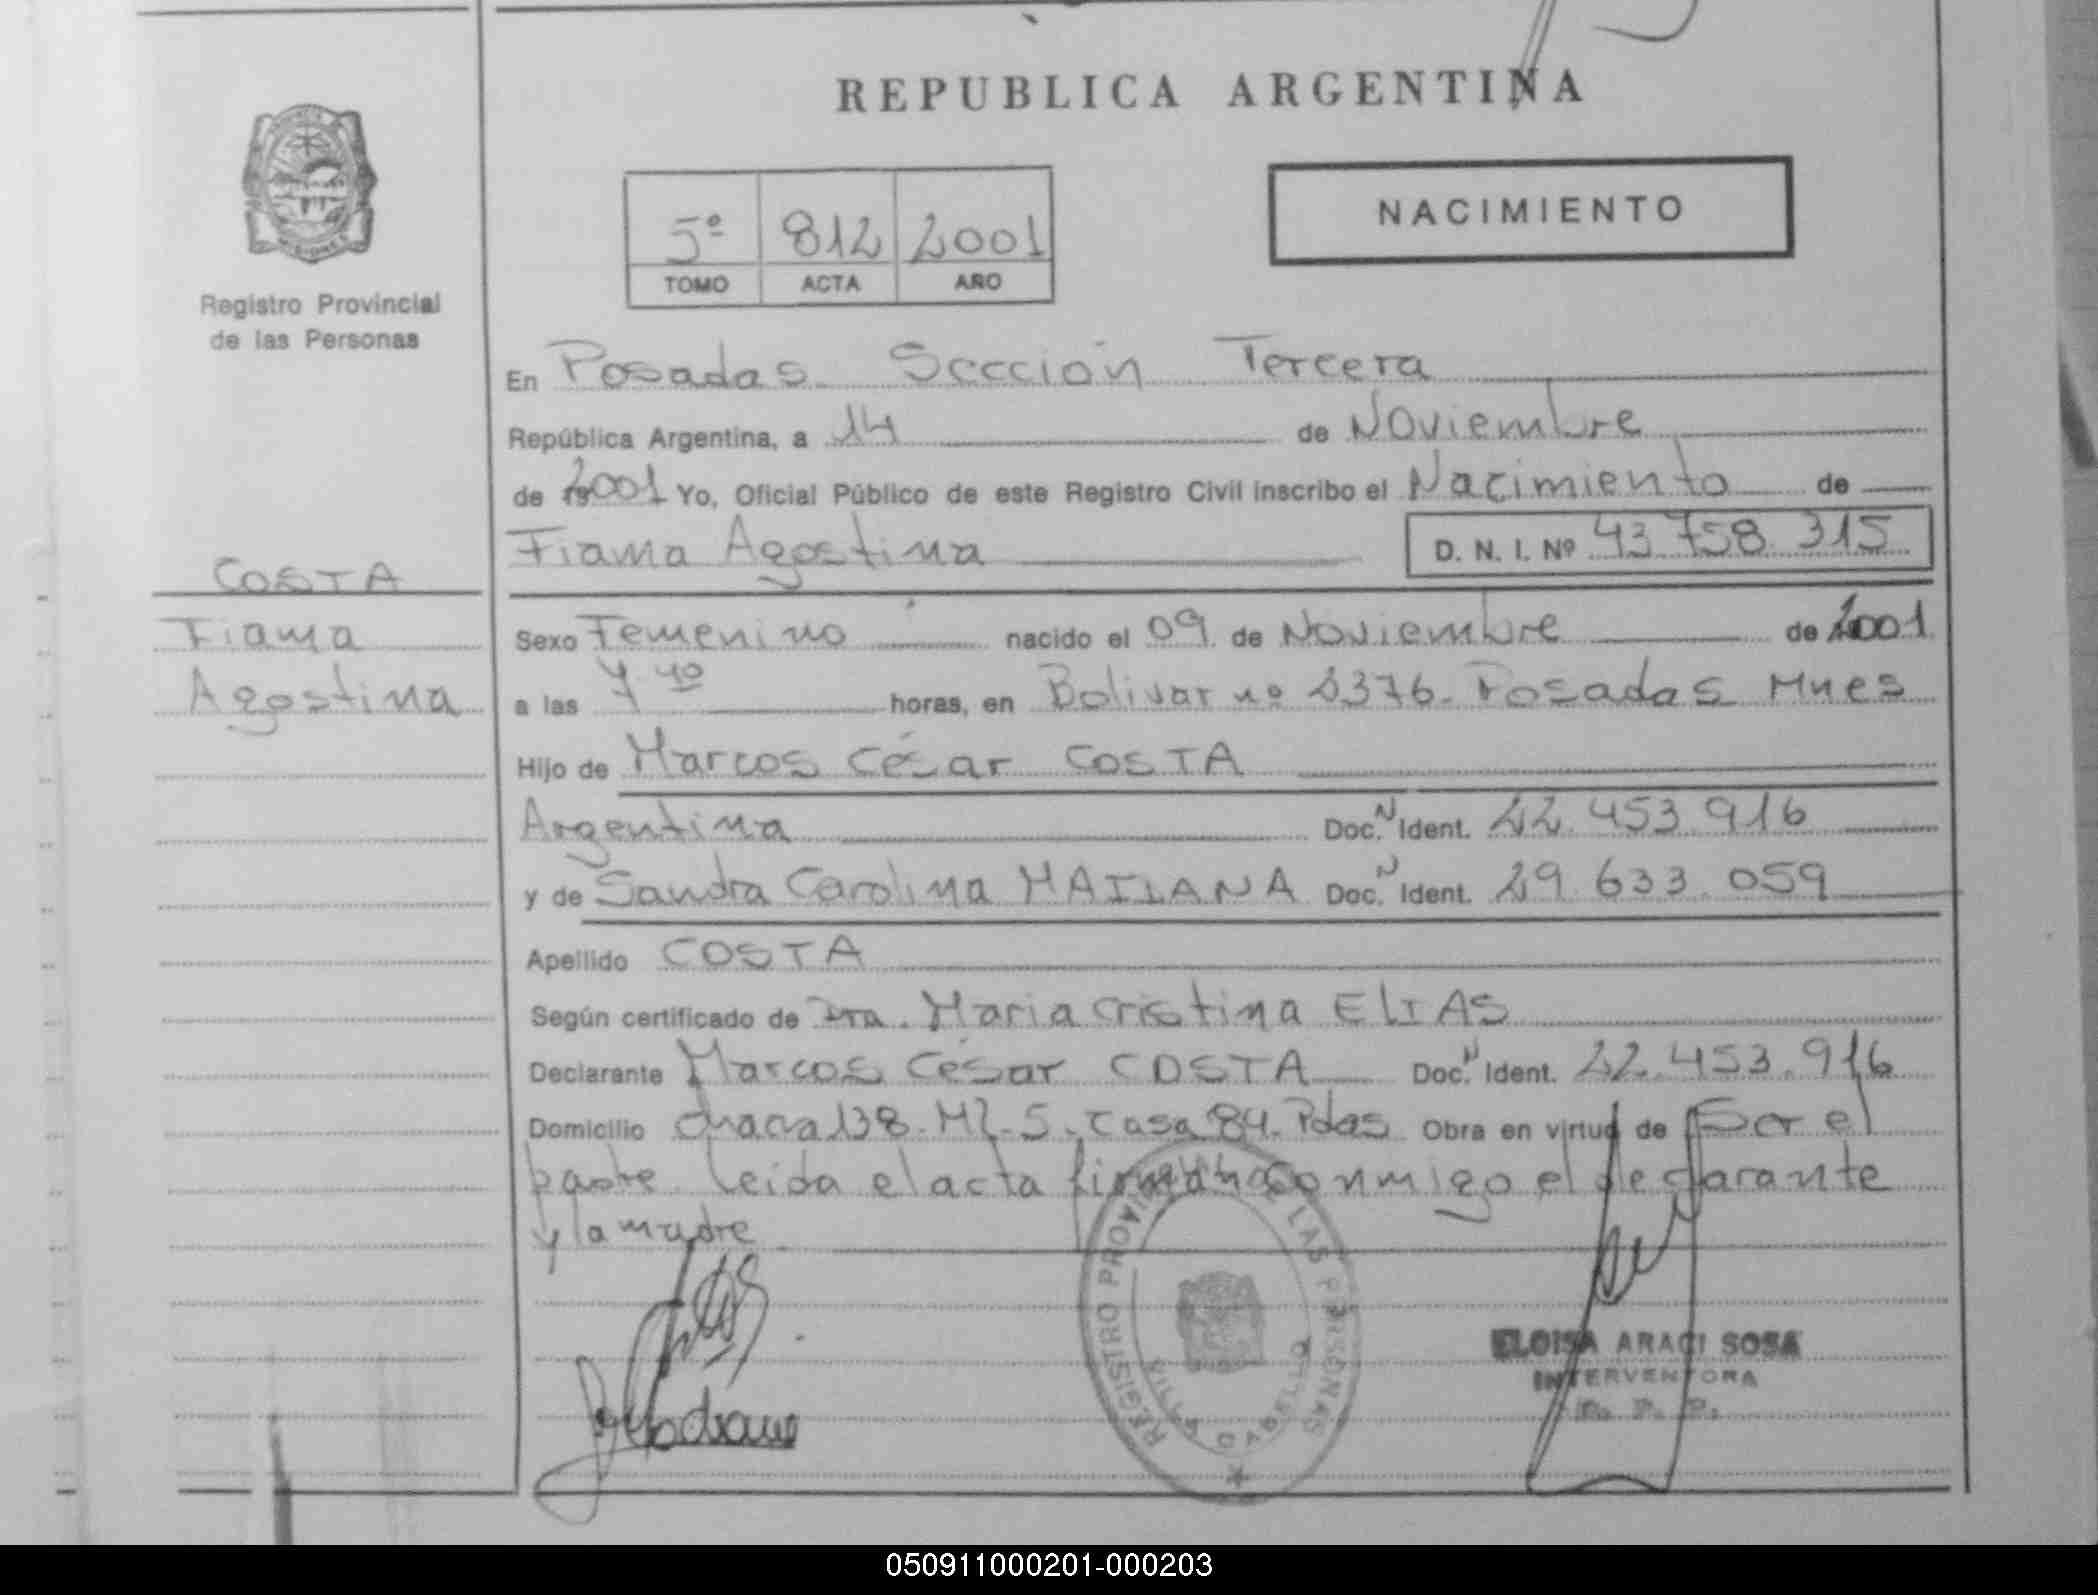 REPUBLICA ARGENTINA
MISIONES
Registro Provincial
de las Personas
5º 812 2001
TOMO ACTA AÑO
NACIMIENTO
En Posadas Sección Tercera
República Argentina, a 14 de Noviembre
de 2001 Yo, Oficial Público de este Registro Civil inscribo el Nacimiento de
Fiama Agostina D. N. I. Nº 43.758.315
COSTA
Fiama
Agostina
Sexo Femenino nacido el 09 de Noviembre de 2001
a las 7 40 horas, en Bolivar nº 2376. Posadas Mnes
Hijo de Marcos César COSTA
Argentina Doc. N Ident. 22.453.916
y de Sandra Carolina MAIDANA Doc. N Ident. 29.633.059
Apellido COSTA
Según certificado de Dra. Maria Cristina ELIAS
Declarante Marcos César COSTA Doc. N Ident. 22.453.916
Domicilio Chacra 138. Mz. 5. Casa 84. Pdas Obra en virtud de Ser el
padre. Leida el acta firman conmigo el declarante
y la madre
REGISTRO PROVINCIAL DE LAS PERSONAS
VILLA CABELLO
ELOISA ARACI SOSA
INTERVENTORA
R. P. P.
050911000201-000203